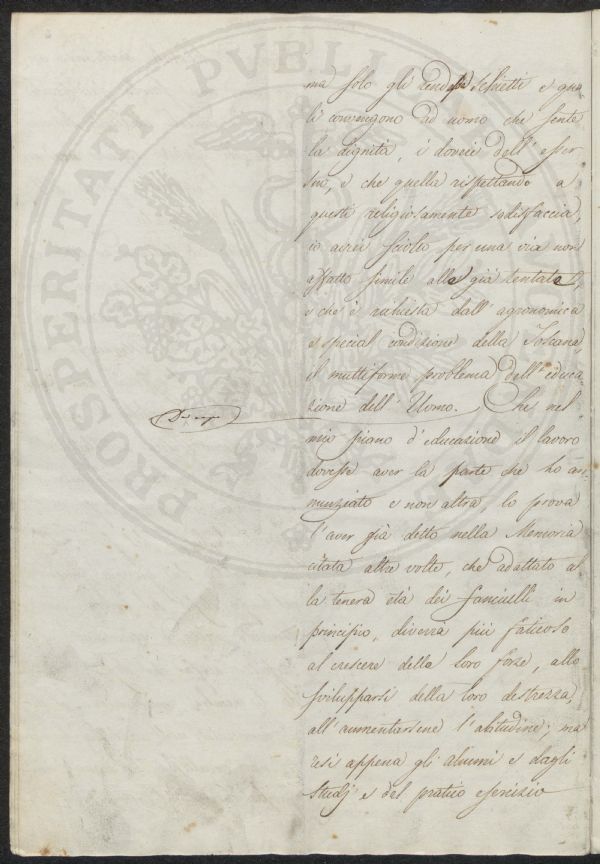 PROSPERITATI PVBLICAE AVGENDAE
ma solo gli rendesse schietti e qua-
li convengono ad uomo che sente
la dignità, i doveri dell' esser
suo, e che quella rispettando a
questi religiosamente sodisfaccia,
io avrei sciolto per una via non
affatto simile alle già tentate,
e che è richiesta dall' agronomica
e special condizione della Toscana,
il multiforme problema dell' educa-
zione dell' Uomo. Che nel
mio piano d' educazione il lavoro
dovesse aver la parte che ho an-
nunziato e non altra, lo prova
l' aver già detto nella Memoria
citata altre volte, che adattato al-
la tenera età dei fanciulli in
principio, diverrà più faticoso
al crescere della loro forze, allo
svilupparsi della loro destrezza,
all' aumentarsene l' abitudine; ma
resi appena gli alunni e dagli
studj e del pratico esercizio